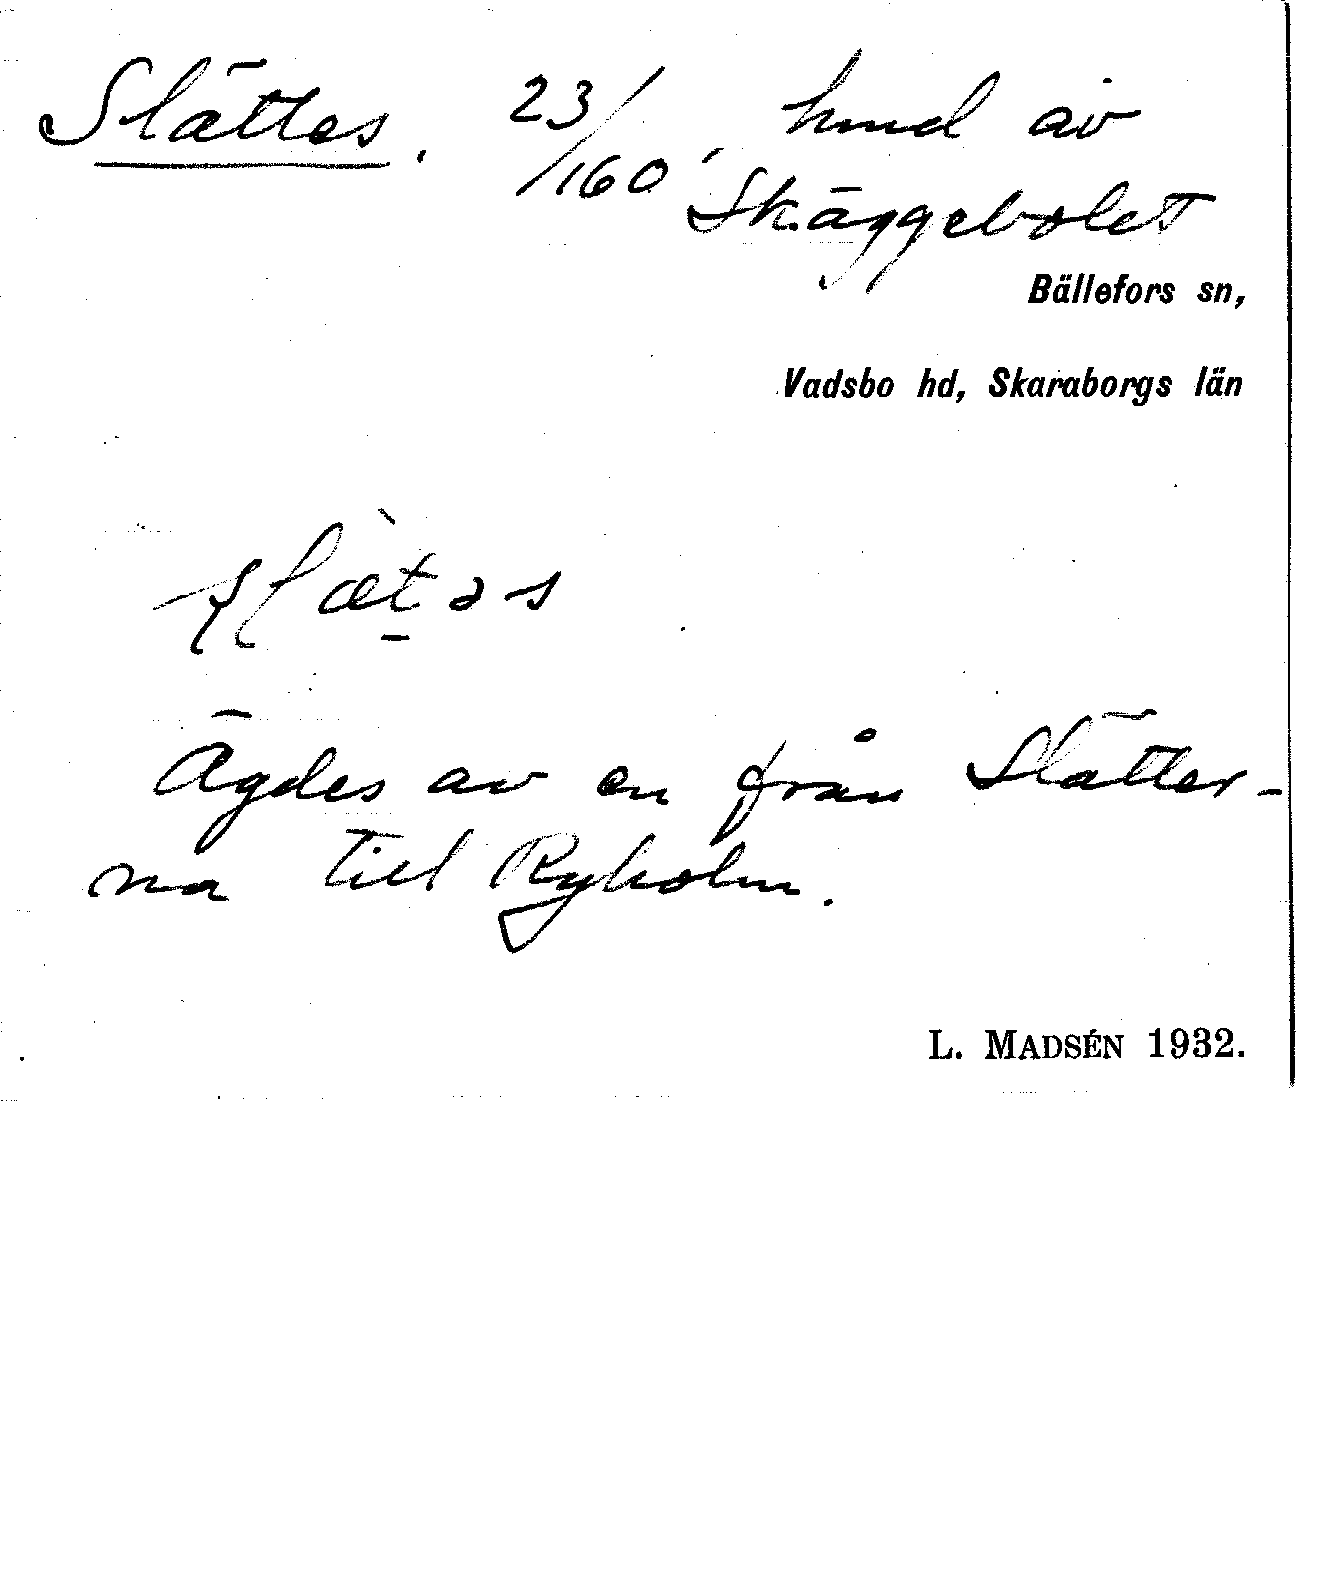 Slättes. 23/160, hmd av
Skäggebolet
Bällefors sn,
Vadsbo hd, Skaraborgs län
Ägdes av en från Slätter-
na till Ryholm.
L. MADSÉN 1932.